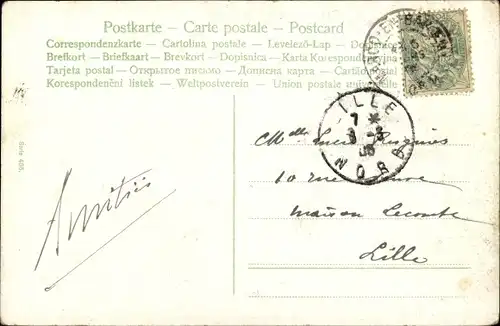 Postkarte – Carte postale – Postcard
Correspondenzkarte – Cartolina postale – Levelező-Lap – Dopisnice
Brefkort – Briefkaart – Brevkort – Dopisnica – Karta Korespondencyjna
Tarjeta postal – Открытое письмо – Дописна карта – Cartão postal
Korespondenční lístek – Weltpostverein – Union postale universelle
LILLE
NORD
Mlle
10 rue
maison Lecomte
Lille
Amitiés
Serie 400.